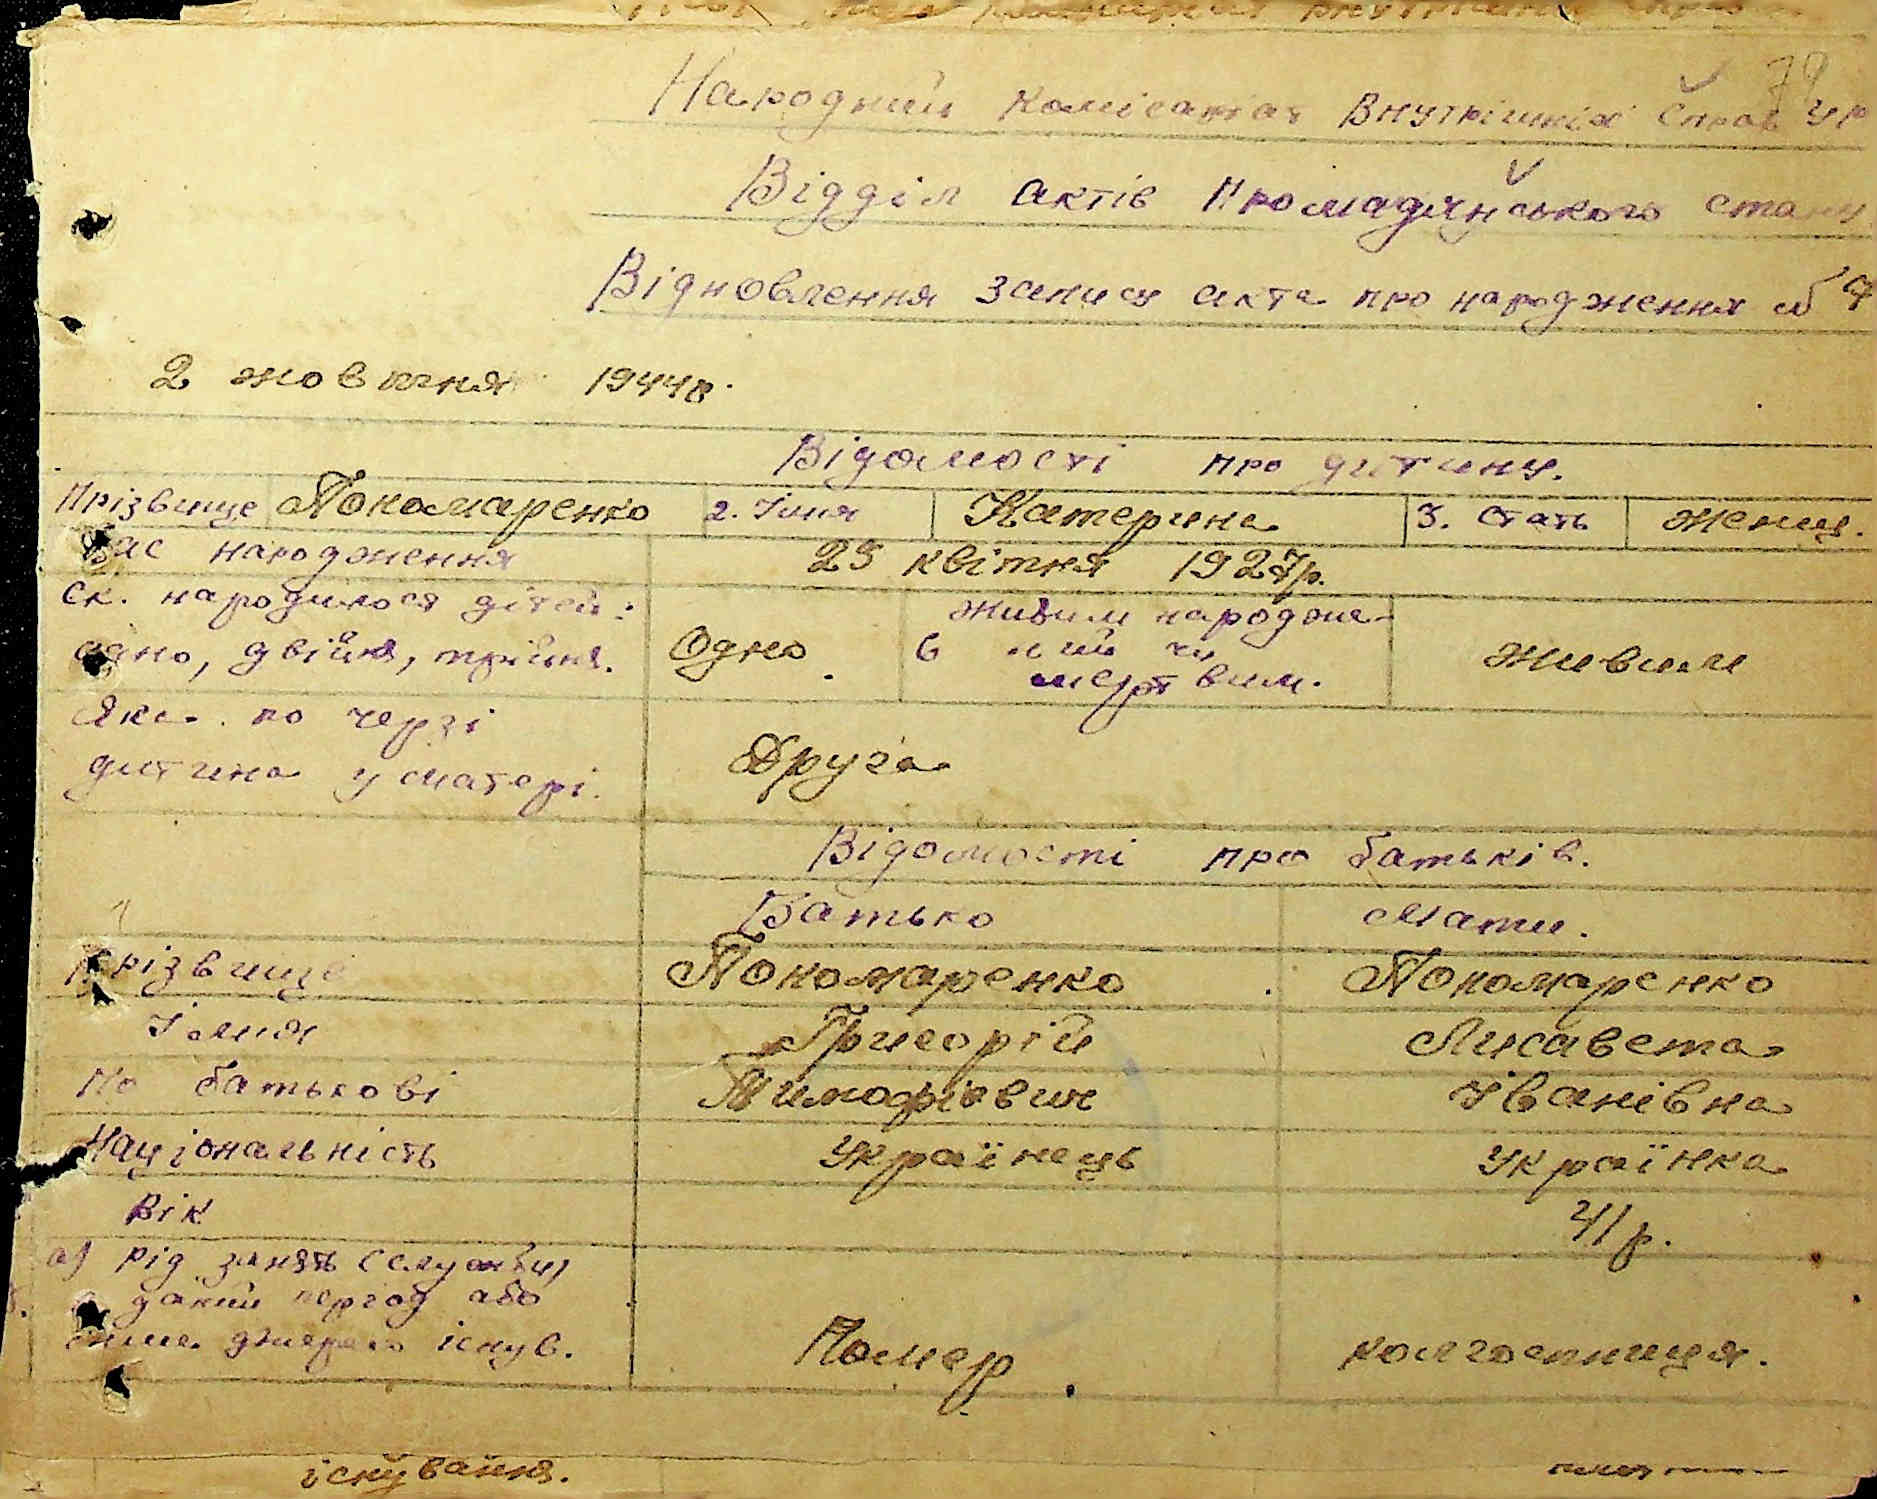 79
Народний комісаріат Внутрішніх Справ УР
Відділ актів громадянського стану
Відновлення запису акта про народження №
2 жовтня 1944 р.
Відомості про дитину.
Прізвище Пономаренко 2. Імня Катерина 3. Стать женщ.
Час народження 25 квітня 1927 р.
Ск. народилося дітей:
одно, двійня, трійня. Одно 6 живим народже-
ний чи
мертвим. живим
Яка по черзі
дитина у матері. Друга
Відомості про батьків.
Батько Мати.
Прізвище Пономаренко Пономаренко
Імня Григорій Лисавета
По батькові Тимофієвич Іванівна
Національність Українець Українка
Вік 41 р.
а) рід занять (службу)
даний період або
джерело існув. Помер. колгоспниця.
існування.